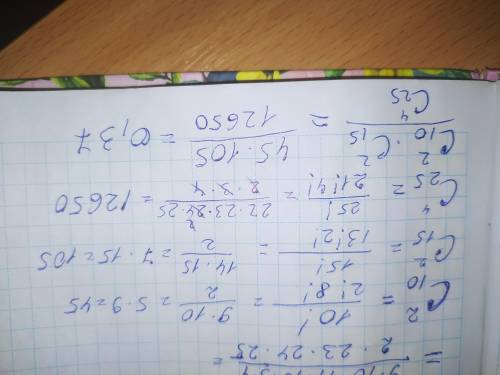 =
2 · 23 · 24 · 25 =
C²₁₀ = 10! / 2! 8! = 9 · 10 / 2 = 5 · 9 = 45
C²₁₅ = 15! / 13! 2! = 14 · 15 / 2 = 7 · 15 = 105
C⁴₂₅ = 25! / 21! 4! = 22 · 23 · 24 · 25 / 2 · 3 · 4 = 12650
C²₁₀ · C²₁₅ / C⁴₂₅ = 45 · 105 / 12650 = 0,37